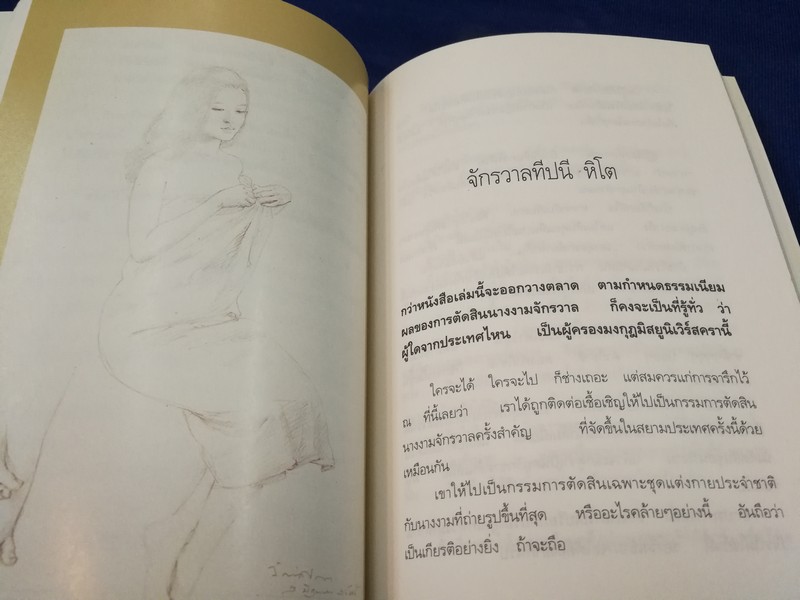 จักรวาลทีปนี หิโต
กว่าหนังสือเล่มนี้จะออกวางตลาด ตามกำหนดธรรมเนียม
ผลของการตัดสินนางงามจักรวาล ก็คงจะเป็นที่รู้ทั่ว ว่า
ผู้ใดจากประเทศไหน เป็นผู้ครองมงกุฎมิสยูนิเวิร์สครานี้
ใครจะได้ ใครจะไป ก็ช่างเถอะ แต่สมควรแก่การจารึกไว้
ณ ที่นี้เลยว่า เราได้ถูกติดต่อเชื้อเชิญให้ไปเป็นกรรมการตัดสิน
นางงามจักรวาลครั้งสำคัญ ที่จัดขึ้นในสยามประเทศครั้งนี้ด้วย
เหมือนกัน
เขาให้ไปเป็นกรรมการตัดสินเฉพาะชุดแต่งกายประจำชาติ
กับนางงามที่ถ่ายรูปขึ้นที่สุด หรืออะไรคล้ายๆอย่างนี้ อันถือว่า
เป็นเกียรติอย่างยิ่ง ถ้าจะถือ